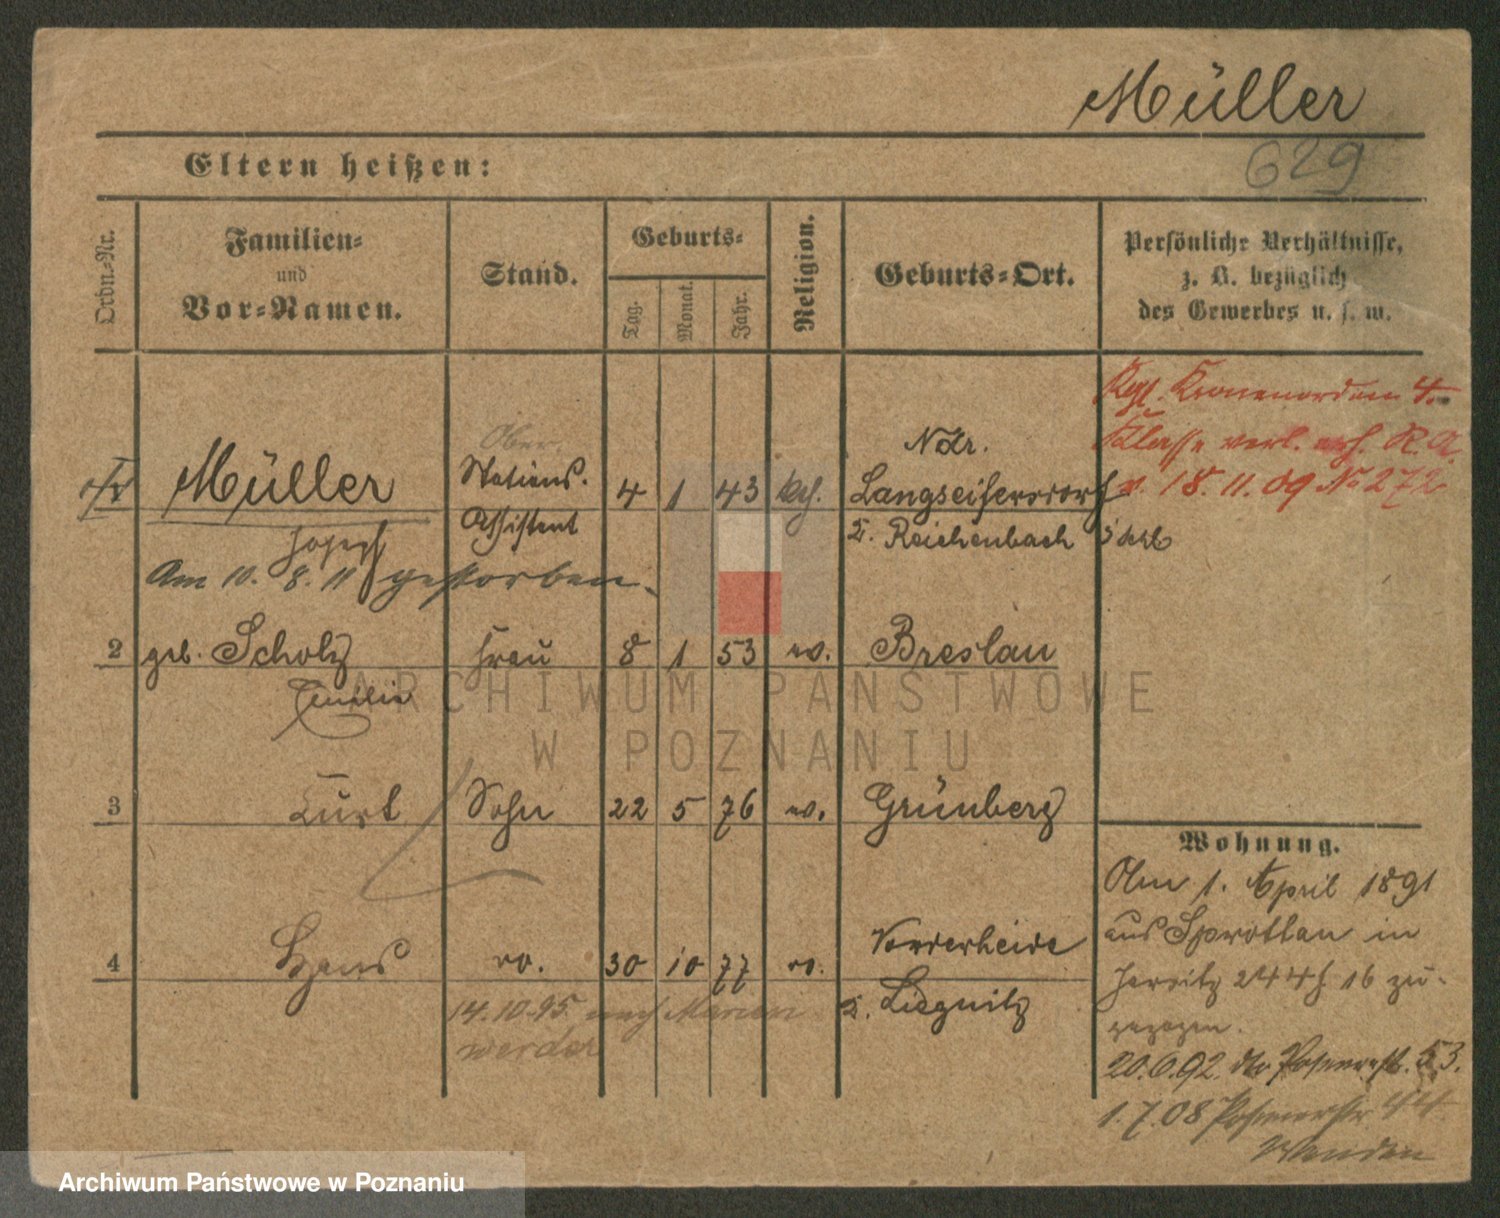 Müller
629
Eltern heißen:
Ordn.-Nr.
Familien-
und
Vor-Namen.
Stand.
Geburts-
Tag.
Monat.
Jahr.
Religion.
Geburts-Ort.
Persönliche Verhältnisse,
z. B. bezüglich
des Gewerbes u. s. w.
Kgl. Kronenorden 4.
Klasse verl. R. A.
v. 18. 11. 09 No 272
Ober
Müller Stations. 4 1 43 kth. Ndr. Langseifersdorf
Joseph Assistent z. Reichenbach
Am 10. 8. 11 gestorben.
2 geb. Scholz Frau 8 1 53 ev. Breslau
Emilie
ARCHIWUM PAŃSTWOWE
W POZNANIU
3 Kurt Sohn 22 5 76 ev. Grünberg
4 Hans do. 30 10 77 do. Vorderheide
z. Liegnitz
14.10.95 nach Marien
werder
Wohnung.
Am 1. April 1891
aus Sprottau in
Jersitz 244 f. 16 zu-
gezogen.
20.6.92. do Posenerstr. 53.
1.7.08 Posenerstr 44
Archiwum Państwowe w Poznaniu